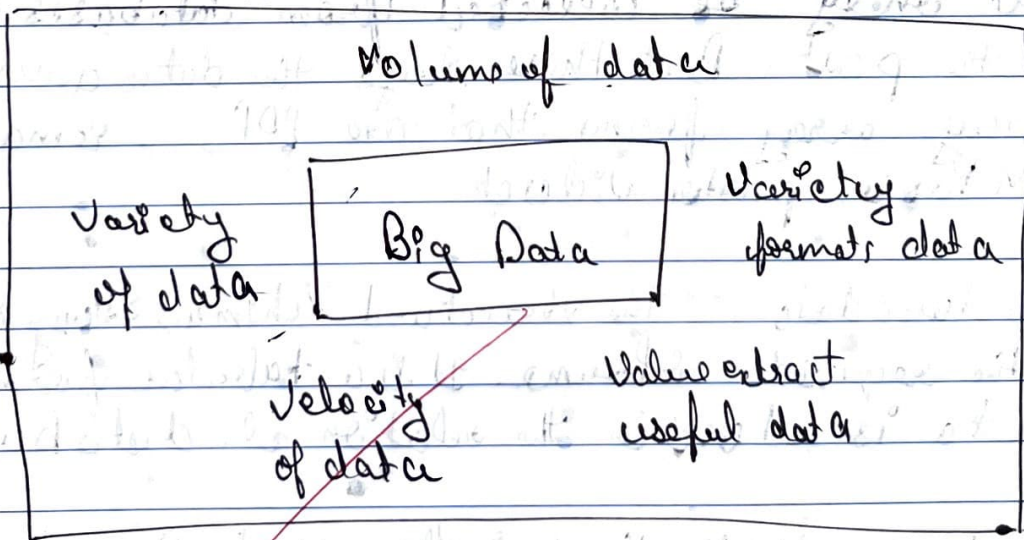 Volume of data
Variety
of data
Big Data
Variety
formats data
Velocity
of data
Value extract
useful data